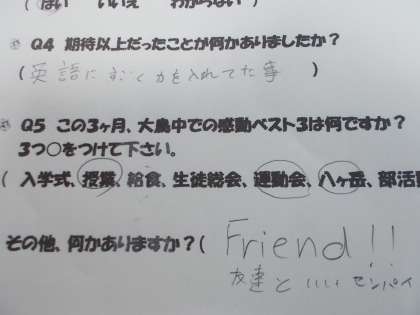 (はい　いいえ　わからない)
Q4 期待以上だったことが何かありましたか？
(英語にすごく力を入れてた事)
Q5 この3ヶ月、大島中での感動ベスト3は何ですか？
3つ○をつけて下さい。
( 入学式、授業、給食、生徒総会、運動会、八ヶ岳、部活
その他、何かありますか？( Friend!!
友達といいセンパイ